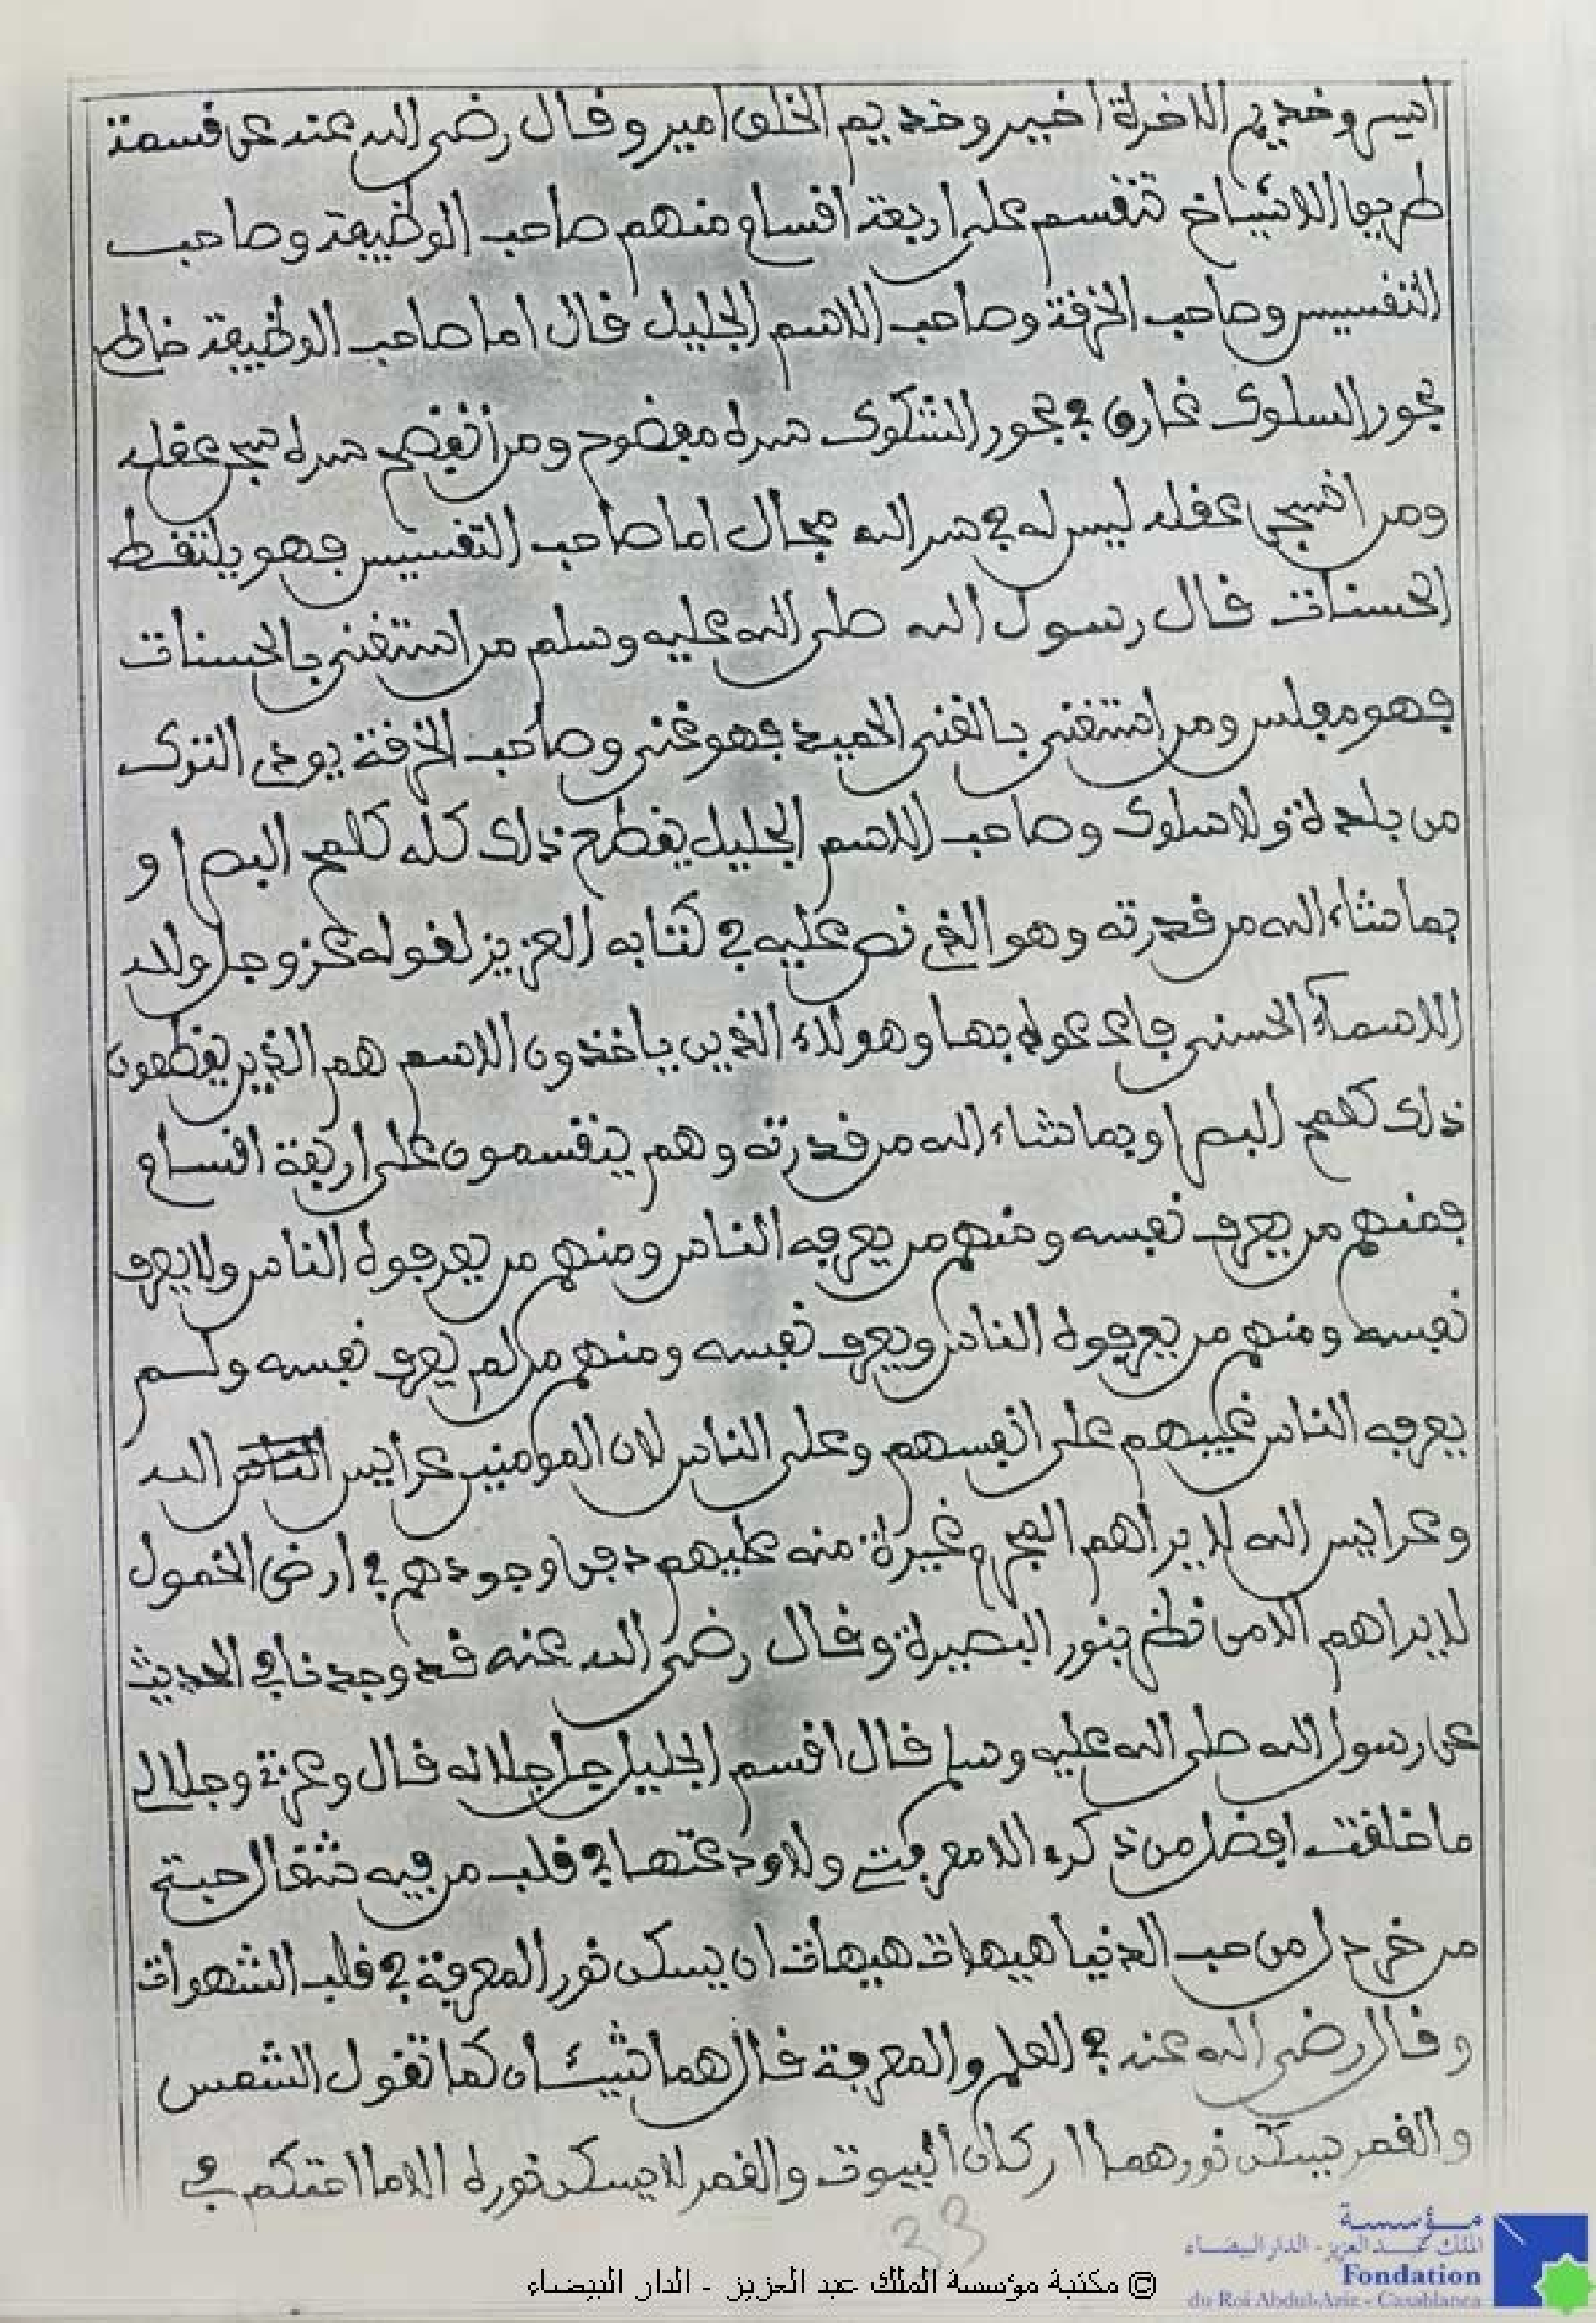 اسير وخديم الاخرة اخبير وخديم الخلق امير وقال رضي الله عنه عن قسمة
طريق الاشياخ تنقسم على اربعة اقسام منهم صاحب الوظيفة وصاحب
التقسيس وصاحب الخرقة وصاحب الاسم الجليل قال اما صاحب الوظيفة خالط
بحور السلوك غارق في بحور الشكوك سره مفضوح ومن انفضح سره سجى عقله
ومن انسجى عقله ليس له في سر الله مجال اما صاحب التقسيس فهو يلتقط
الحسنات قال رسول الله صلى الله عليه وسلم من استغنى بالحسنات
فهو مفلس ومن استغنى بالغنى الحميد فهو غني وصاحب الخرقة يودي الترك
من بلدة ولا سلوك وصاحب الاسم الجليل يقطع ذلك كله كلمح البصر او
بما شاء الله من قدرته وهو الذي نص عليه في كتابه العزيز لقوله عز وجل ولله
الاسماء الحسنى فادعوه بها وهولاء الذين ياخذون الاسم هم الذين يقطعون
ذلك كلمح البصر او بما شاء الله من قدرته وهم ينقسمون على اربعة اقسام
فمنهم من يعرف نفسه ومنهم من يعرفه الناس ومنهم من يعرفوه الناس ولا يعرف
نفسه ومنهم من يعرفوه الناس ويعرف نفسه ومنهم من لم يعرف نفسه ولم
يعرفه الناس غيبهم على انفسهم وعلى الناس لان المومنين عرايس الناس الله
وعرايس الله لا يراهم المجرم غيرة منه عليهم دفن وجودهم في ارض الخمول
لا يراهم الا من نظر بنور البصيرة وقال رضي الله عنه قد وجدنا في الحديث
عن رسول الله صلى الله عليه وسلم قال اقسم الجليل جل جلاله قال وعزتي وجلالي
ما خلقت افضل من ذكري الا معرفتي ولا ودعتها في قلب من فيه مثقال حبة
من خردل من حب الدنيا هيهات هيهات ان يسكن نور المعرفة في قلب الشهوات
وقال رضي الله عنه في العلم والمعرفة قال هما شيئان كما تقول الشمس
والقمر يسكن نورهما اركان البيوت والقمر لا يسكن نوره الا ما احتكم في
33
© مكتبة مؤسسة الملك عبد العزيز - الدار البيضاء
مؤسسة
الملك عبد العزيز - الدار البيضاء
Fondation
du Roi Abdul-Aziz - Casablanca